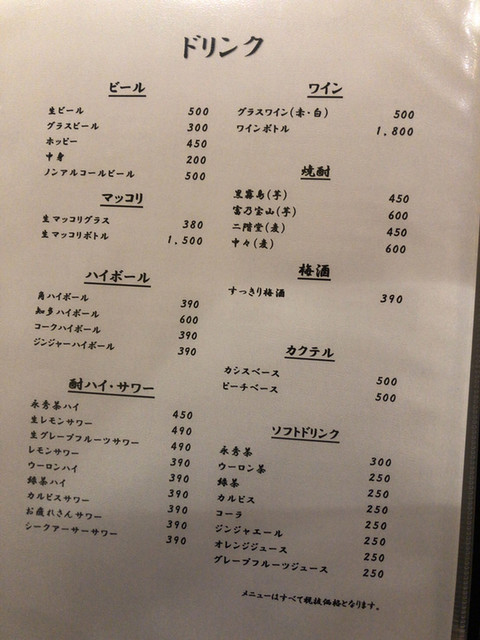 ドリンク
ビール
生ビール 500
グラスビール 300
ホッピー 450
中身 200
ノンアルコールビール 500
マッコリ
生マッコリグラス 380
生マッコリボトル 1.500
ハイボール
角ハイボール 390
知多ハイボール 600
コークハイボール 390
ジンジャーハイボール 390
酎ハイ・サワー
永秀茶ハイ 450
生レモンサワー 490
生グレープフルーツサワー 490
レモンサワー 390
ウーロンハイ 390
緑茶ハイ 390
カルピスサワー 390
お疲れさんサワー 390
シークアーサーサワー 390
ワイン
グラスワイン(赤・白) 500
ワインボトル 1.800
焼酎
黒霧島(芋) 450
富乃宝山(芋) 600
二階堂(麦) 450
中々(麦) 600
梅酒
すっきり梅酒 390
カクテル
カシスベース 500
ピーチベース 500
ソフトドリンク
永秀茶 300
ウーロン茶 250
緑茶 250
カルピス 250
コーラ 250
ジンジャエール 250
オレンジジュース 250
グレープフルーツジュース 250
メニューはすべて税抜価格となります。